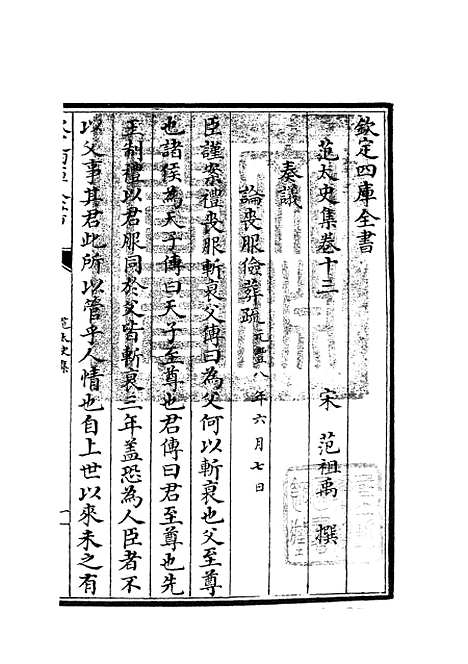 欽定四庫全書
范太史集卷十三
宋 范祖禹 撰
奏議
論喪服儉葬疏 元豐八年六月七日
臣謹案禮喪服斬衰父傳曰為父何以斬衰也父至尊
也諸侯為天子傳曰天子至尊也君傳曰君至尊也先
王制禮以君服同於父皆斬衰三年蓋恐為人臣者不
以父事其君此所以管乎人情也自上世以來未之有
范太史集